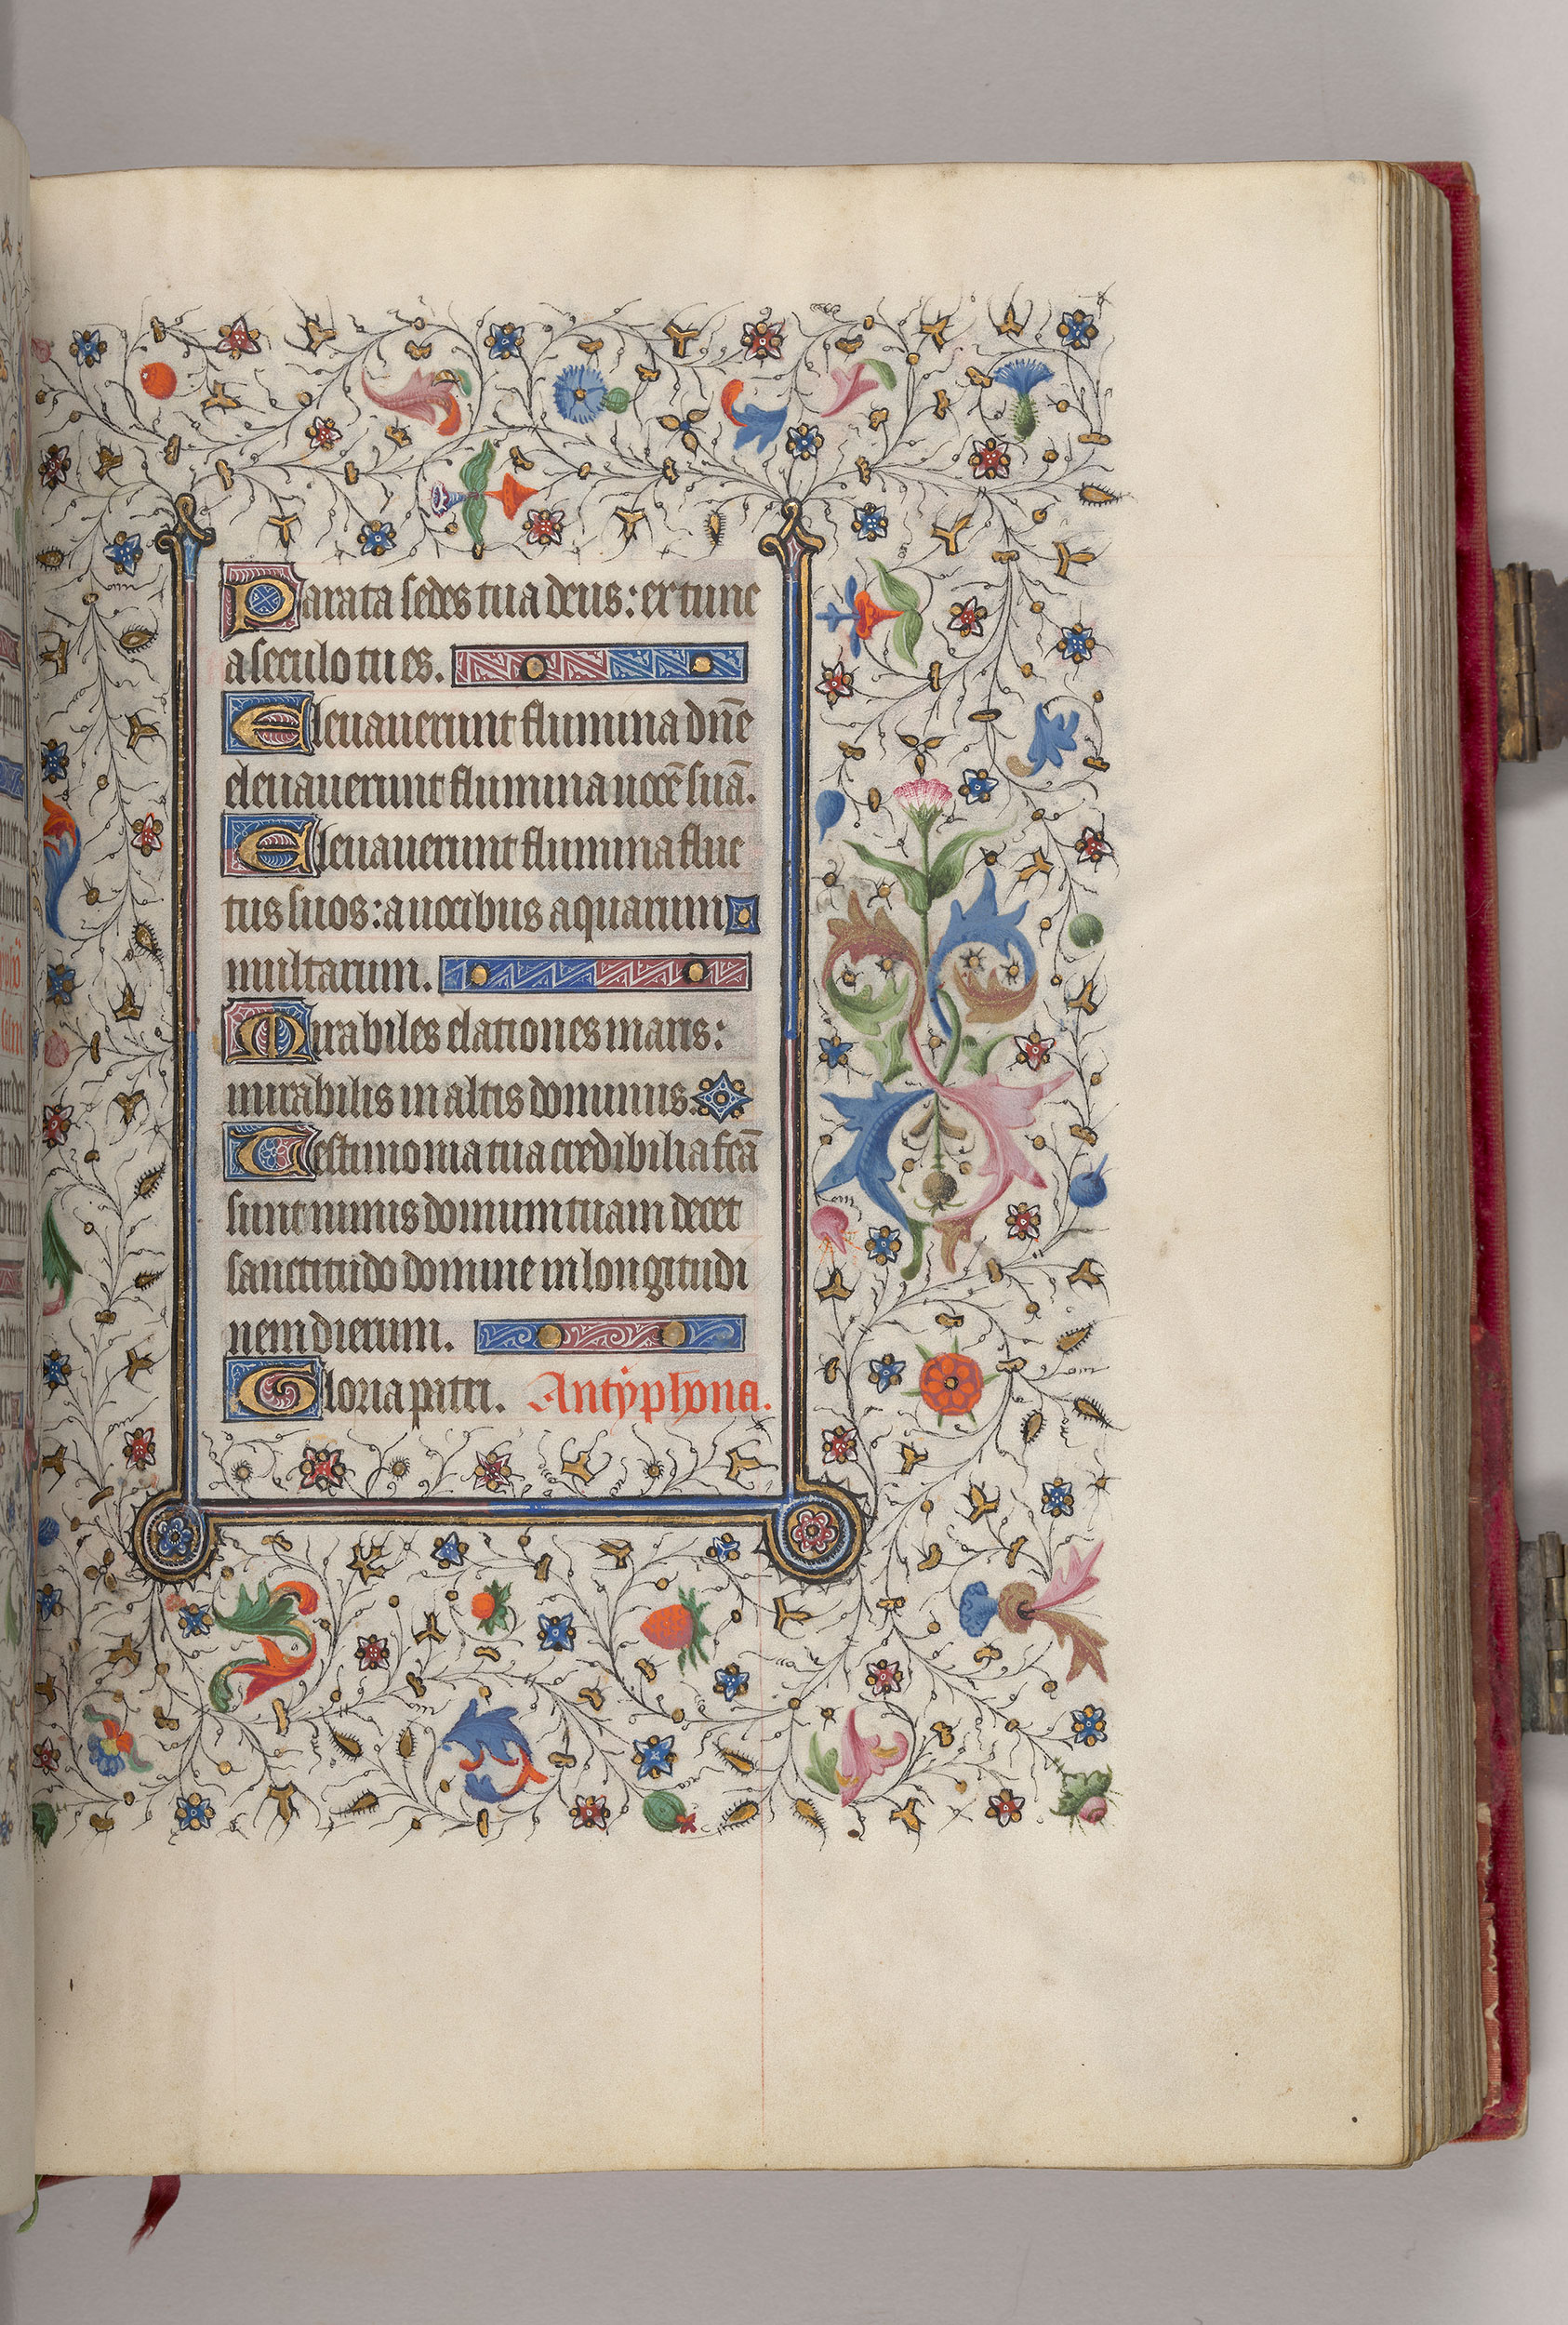 Parata sedes tua deus: ex tunc
a seculo tu es.
Eleuauerunt flumina dn̄e
eleuauerunt flumina uocē suā.
Eleuauerunt flumina fluc
tus suos: a uocibus aquarum
multarum.
Mirabiles elationes maris:
mirabilis in altis dominus.
Testimonia tua credibilia fc̄ā
sunt nimis domum tuam decet
sanctitudo domine in longitudi
nem dierum.
Gloria patri. Antyphona.